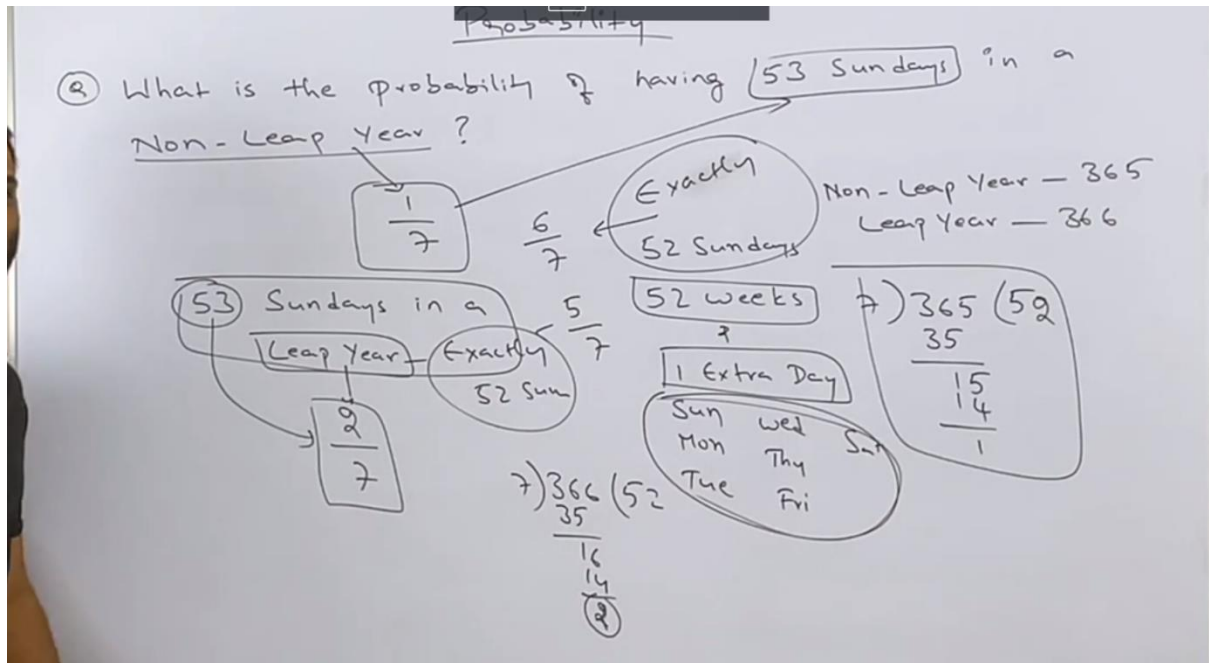 Probability
Q What is the probability of having 53 Sundays in a
Non-Leap Year ?
1
7
6
7
Exactly
52 Sundays
Non-Leap Year — 365
Leap Year — 366
53 Sundays in a
Leap Year — Exactly
52 Sun
5
7
2
7
52 weeks
1 Extra Day
Sun Wed Sat
Mon Thu
Tue Fri
7)365(52
35
15
14
1
7)366(52
35
16
14
2